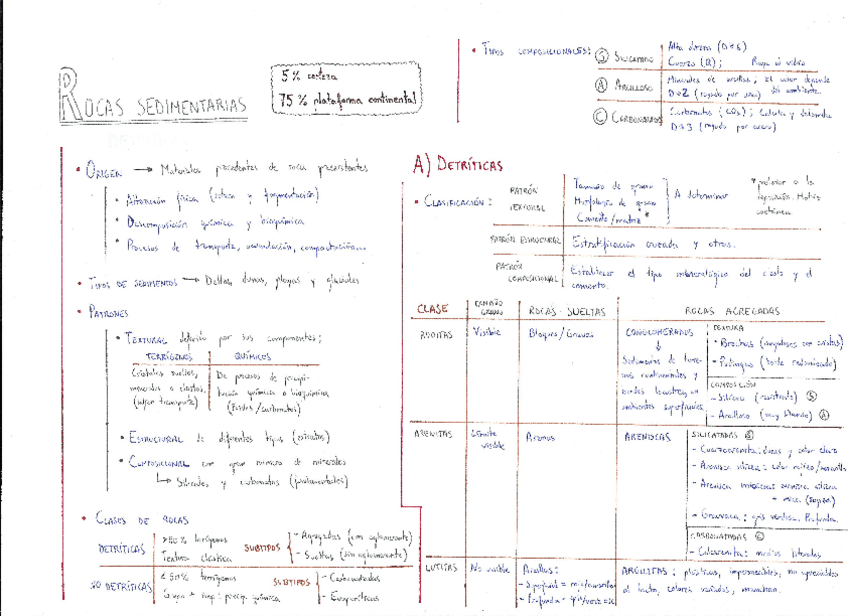 ROCAS SEDIMENTARIAS
5% corteza
75% plataforma continental
• TIPOS COMPOSICIONALES:
Ⓢ SILICATADO
Alta dureza (D≈6)
Cuarzo (Q); Raya el vidrio
Ⓐ ARCILLOSO
Minerales de arcillas, El color depende del ambiente.
D≈2 (rayado por uña)
Ⓒ CARBONATADO
Carbonatos (CO₃); Calcita y dolomita
D≈3 (rayado por acero)
• ORIGEN → Materiales procedentes de roca preexistentes
• Alteración física (rotura y fragmentación)
• Descomposición química y bioquímica
• Procesos de transporte, acumulación, compactación...
• TIPOS DE SEDIMENTOS → Deltas, dunas, playas y glaciales
• PATRONES
• TEXTURAL definido por sus componentes:
TERRÍGENOS QUÍMICOS
Cristales sueltos,
minerales o clastos,
(sufren transporte)
De procesos de precipi-
tación química o bioquímica
(Fósiles/carbonatos)
• ESTRUCTURAL de diferentes tipos (estratos)
• COMPOSICIONAL con gran número de minerales
↳ Silicatos y carbonatos (fundamentales)
• CLASES DE ROCAS
DETRÍTICAS
>50% terrígenos
Textura clástica
SUBTIPOS
- Agregadas (con aglomerante)
- Sueltas (sin aglomerante)
NO DETRÍTICAS
<50% terrígenos
precip. química
SUBTIPOS
- Carbonatadas
- Evaporíticas
A) DETRÍTICAS
• CLASIFICACIÓN:
PATRÓN TEXTURAL
Tamaño de grano
Morfología de grano
Cemento/matriz *
A determinar
* posterior a la
Matriz
PATRÓN ESTRUCTURAL Estratificación cruzada y otros.
PATRÓN COMPOSICIONAL
Establecer el tipo mineralógico del clasto y el
cemento.
CLASE TAMAÑO GRANO ROCAS SUELTAS ROCAS AGREGADAS
RUDITAS Visible Bloques/Gravas
CONGLOMERADOS
↓
continentales y
ambientes superficiales.
TEXTURA
• Brechas (angulosos con aristas)
• Pudingas (borde redondeado)
COMPOSICIÓN
- Silíceo (resistente) Ⓢ
- Arcilloso (muy blando) Ⓐ
ARENITAS Límite visible Arenas ARENISCAS
SILICATADAS Ⓢ
- Cuarzoarenita: duras y color claro
- Arenisca silícea: color rojizo/amarillo
- Arenisca micácea: arenisca silícea
+ mica
- Grauvaca: gris verdosa. Profundas.
CARBONATADAS Ⓒ
- Calcarenita: medios litorales
LUTITAS No visible
Arcillas:
- Superficial =
- Profunda =
ARGILITAS: plásticas, impermeables, no apreciables
al tacto, colores variados,